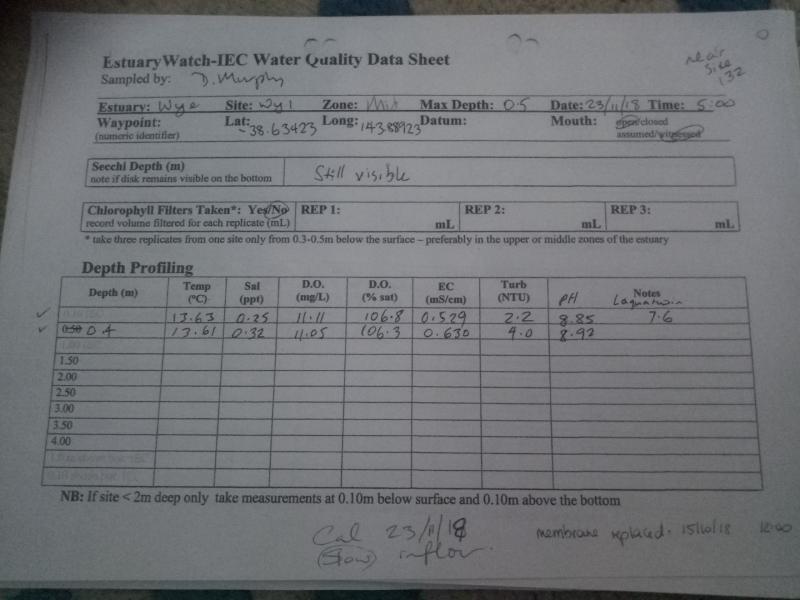 EstuaryWatch-IEC Water Quality Data Sheet
near site 132
Sampled by: D. Murphy
Estuary: Wye Site: Wy1 Zone: Mid Max Depth: 0.5 Date: 23/11/18 Time: 5:00
Waypoint: Lat: -38.63423 Long: 143.88923 Datum: Mouth: open/closed
(numeric identifier) assumed/witnessed
Secchi Depth (m) Still visible
note if disk remains visible on the bottom
Chlorophyll Filters Taken*: Yes/No REP 1: REP 2: REP 3:
record volume filtered for each replicate (mL) mL mL mL
* take three replicates from one site only from 0.3-0.5m below the surface – preferably in the upper or middle zones of the estuary
Depth Profiling
Depth (m) Temp (°C) Sal (ppt) D.O. (mg/L) D.O. (% sat) EC (mS/cm) Turb (NTU) pH Notes Laquatwin
13.63 0.25 11.11 106.8 0.529 2.2 8.85 7.6
0.50 0.4 13.61 0.32 11.05 106.3 0.630 4.0 8.92
1.50
2.00
2.50
3.00
3.50
4.00
NB: If site < 2m deep only take measurements at 0.10m below surface and 0.10m above the bottom
Cal 23/11/18 membrane replaced. 15/10/18 12:00
(Slow) inflow.